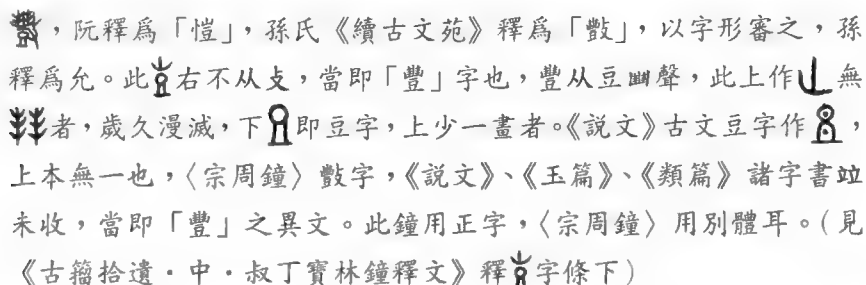 ,阮釋爲「愷」,孫氏《續古文苑》釋爲「𢿱」,以字形審之,孫
釋爲允。此右不从攴,當即「豐」字也,豐从豆聲,此上作無
者,歲久漫滅,下即豆字,上少一畫者。《説文》古文豆字作,
上本無一也,〈宗周鐘〉字,《説文》、《玉篇》、《類篇》諸字書竝
未收,當即「豐」之異文。此鐘用正字,〈宗周鐘〉用別體耳。(見
《古籀拾遺・中・叔丁寶林鐘釋文》釋字條下)